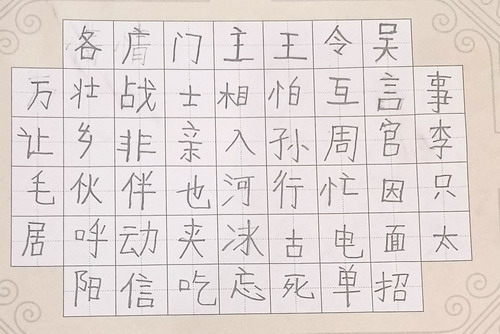 各唐门主王令吴
万壮战士相怕互言事
让乡非亲入孙周官李
毛伙伴也河行忙因只
居呼动夹冰古电面太
阳信吃忘死单招